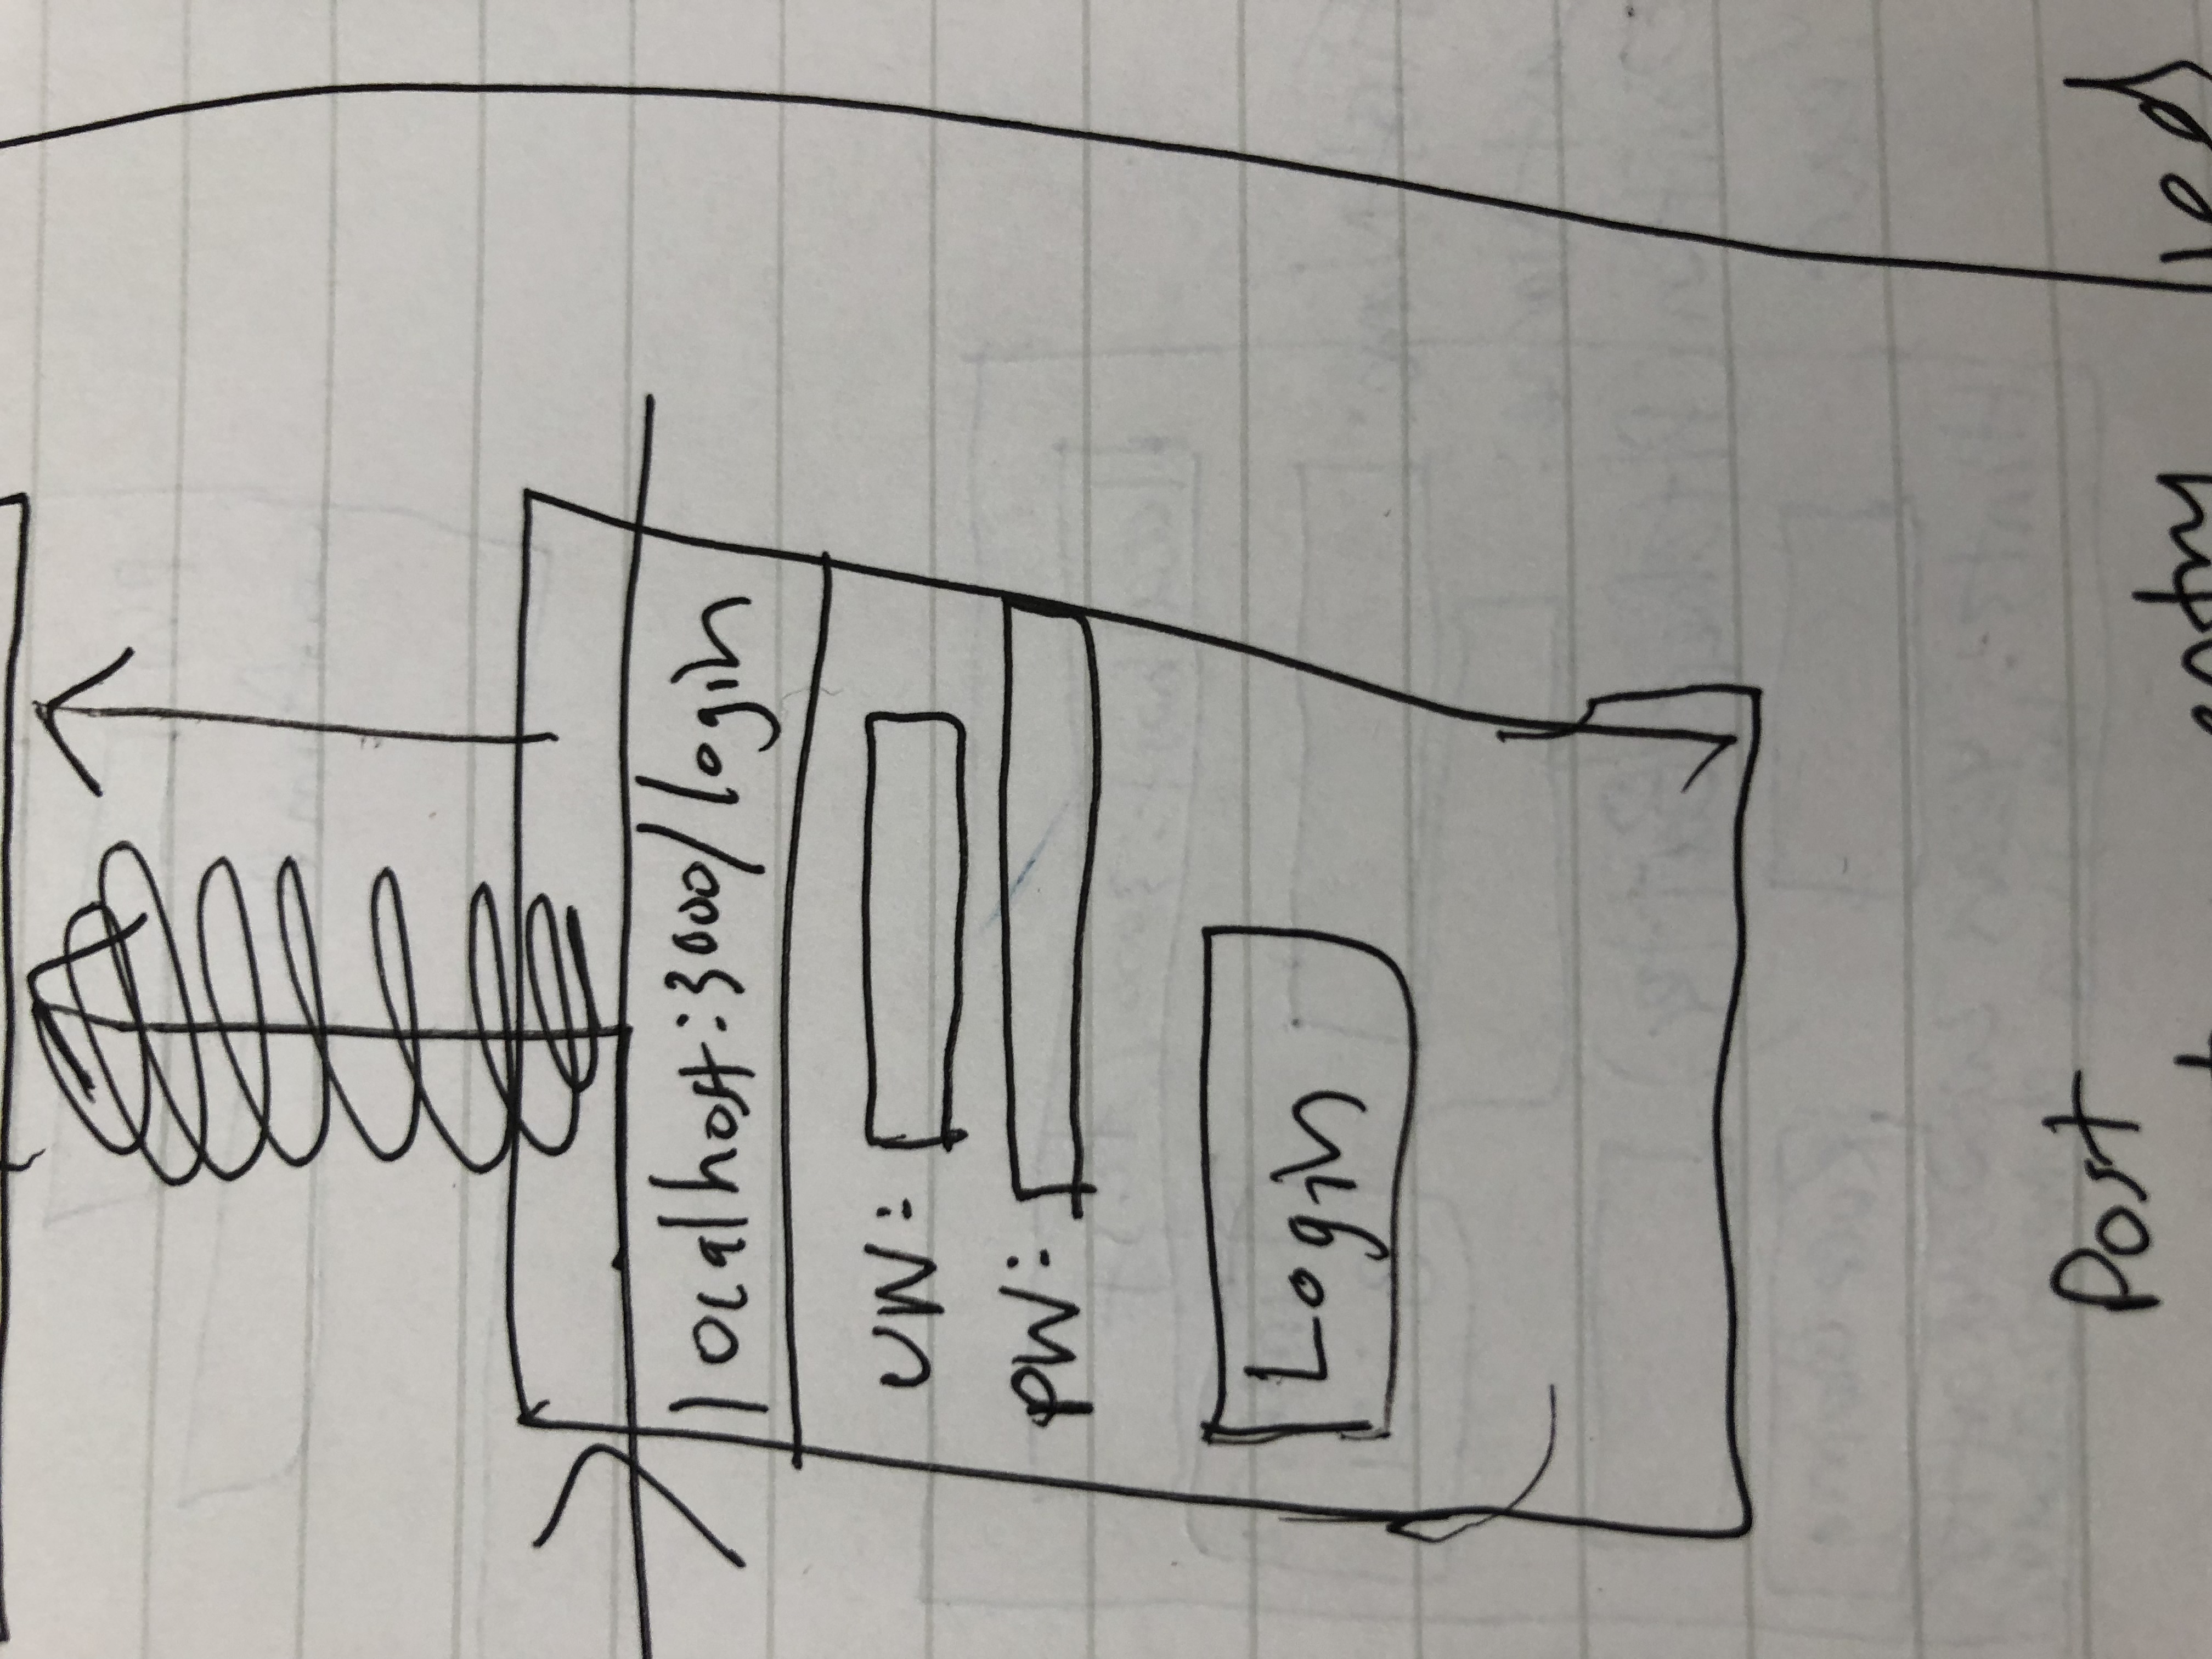 localhost:3000/login
UN:
PW:
Login
Post
entry